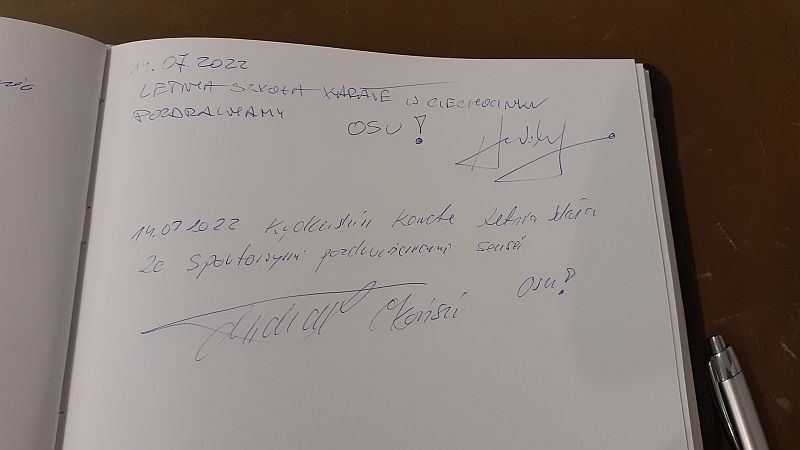 14.07.2022
LETNIA SZKOŁA KARATE W CIECHOCINKU
POZDRAWIAMY
OSU!
14.07.2022 Kyokushin Karate Letnia Szkoła
Ze Sportowymi pozdrowieniami sensei
Osu!